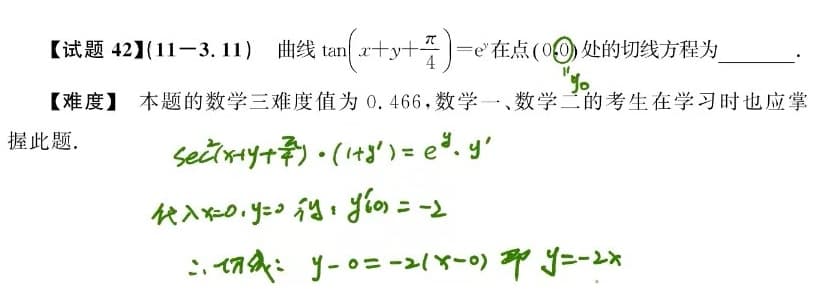 【试题 42】(11-3. 11) 曲线 tan(x+y+π/4)=e^y在点(0,0)处的切线方程为______.
"y₀
【难度】 本题的数学三难度值为 0.466,数学一、数学二的考生在学习时也应掌
握此题.
sec²(x+y+π/4)·(1+y′)=e^y·y′
代入x=0,y=0得:y′(0)=-2
∴切线: y-0=-2(x-0) 即 y=-2x